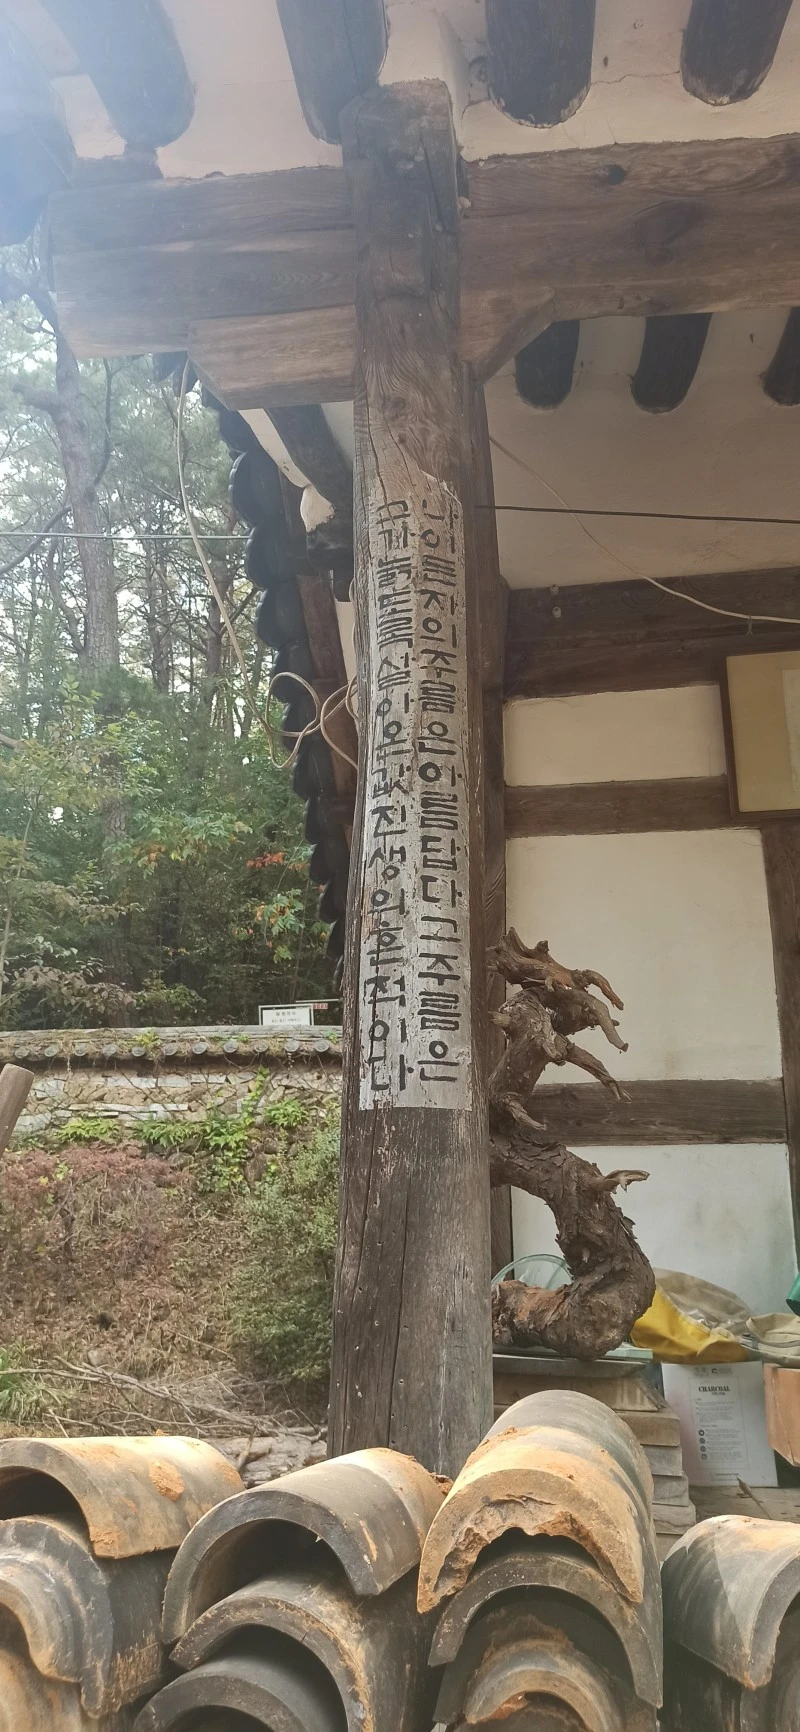 나이든자의주름은아름답다그주름은
곱게늙도록살아온값진생의흔적이다
CHARCOAL